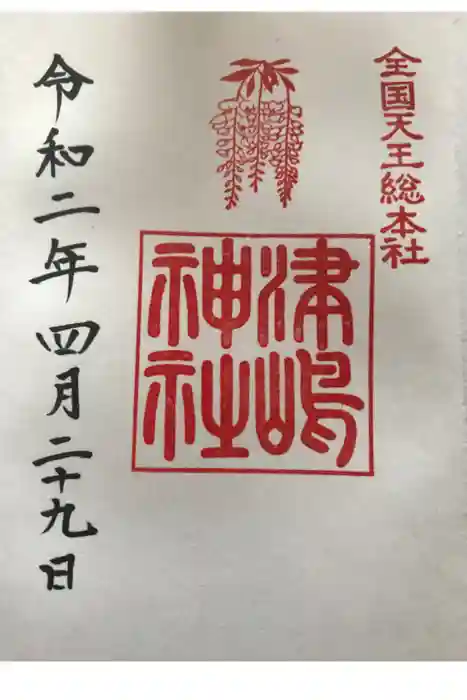 全国天王総本社
津嶋
神社
令和二年四月二十九日